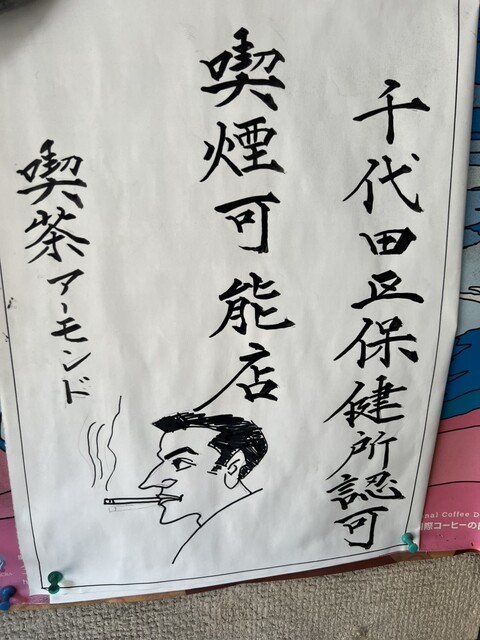 千代田区保健所認可
喫煙可能店
喫茶アーモンド
nal Coffee D
際コーヒーの